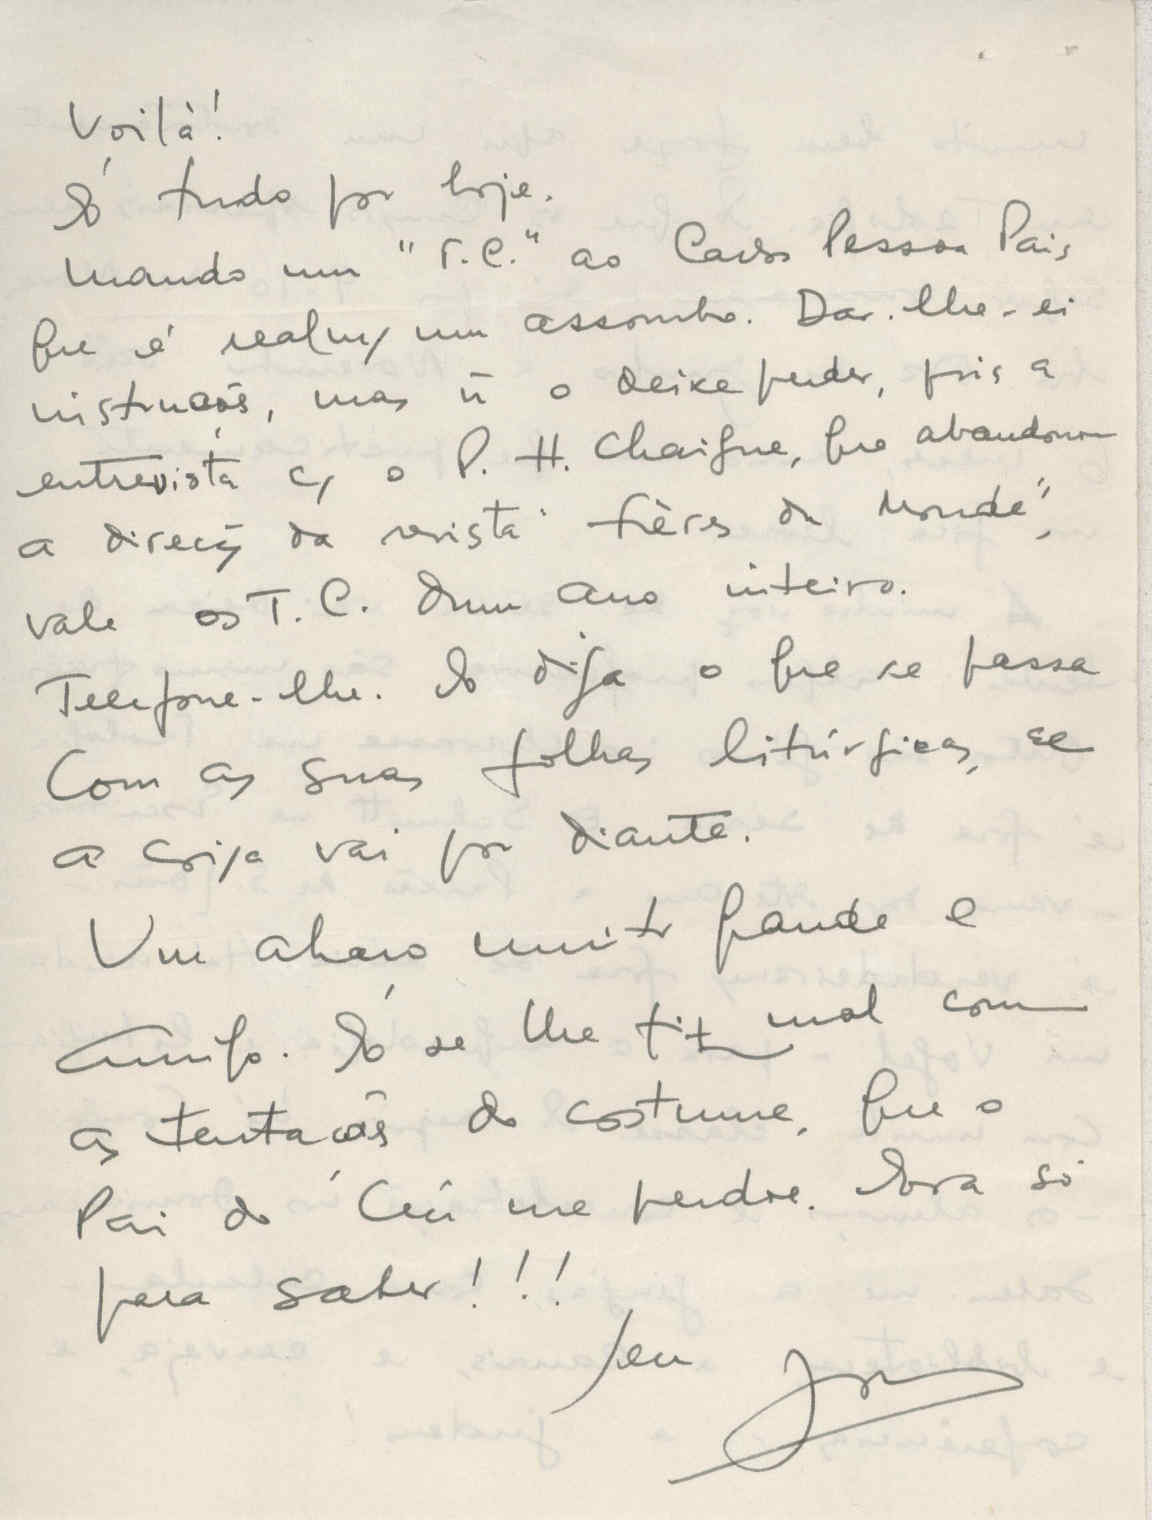 Voilà!
É tudo por hoje.
Mando um "T.C." ao Carlos Pessoa Pais
que é realm/ um assombro. Dar-lhe-ei
instruções, mas ñ o deixe perder, pois a
entrevista c/ o P. H. Chaigne, que abandonou
a direcç̃ da revista "Frères du Monde",
vale os T.C. dum ano inteiro.
Telefone-lhe. E diga o que se passa
com as suas folhas litúrgicas, se
a coisa vai por diante.
Um abraço muito grande e
amigo. E se lhe fiz mal com
as tentações do costume, que o
Pai do Céu me perdoe. Era só
para saber!!!
Seu